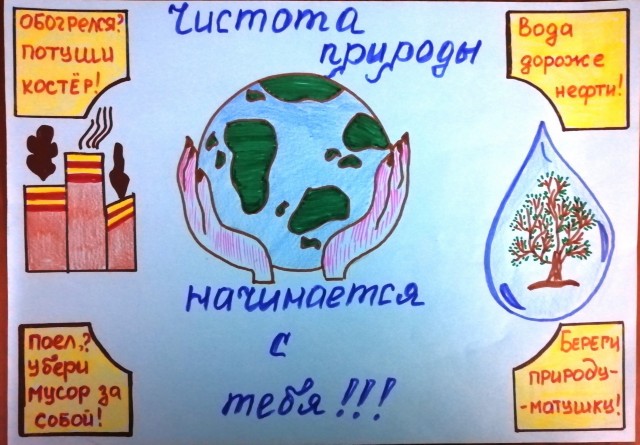 Обогрелся?
потуши
костёр!
Чистота
природы
Вода
дороже
нефти!
начинается
с
тебя!!!
Поел,?
убери
мусор за
собой!
Береги
природу-
-матушку!